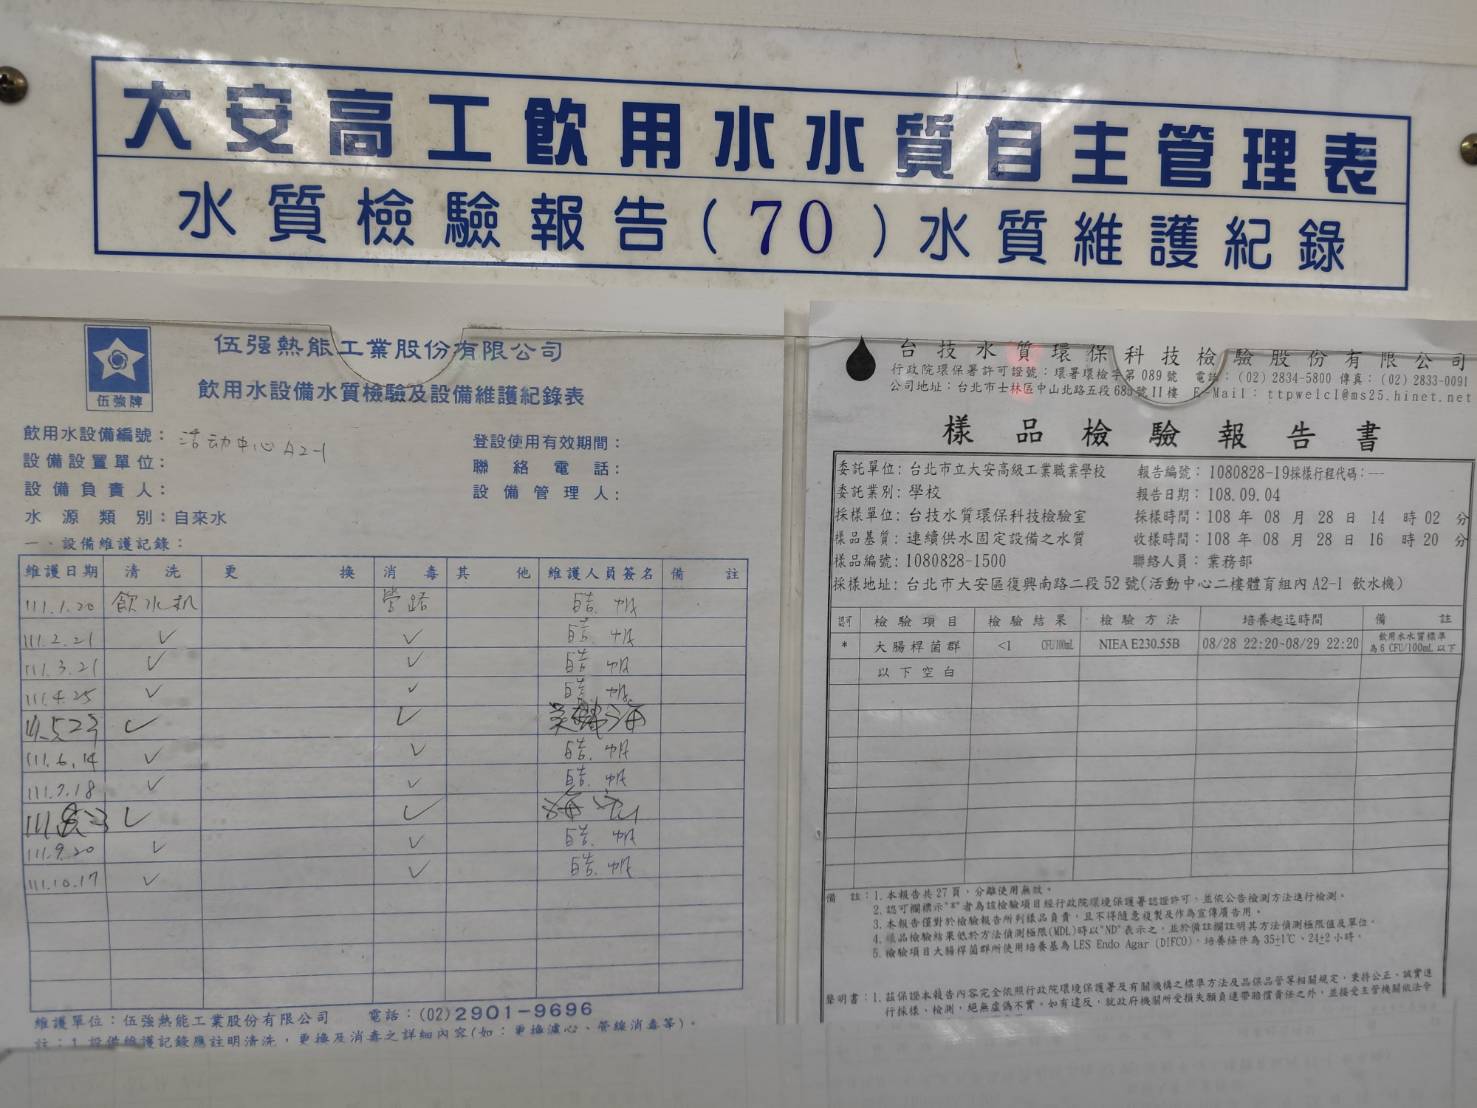 大安高工飲用水水質自主管理表
水質檢驗報告(70)水質維護紀錄
伍強牌
伍強熱能工業股份有限公司
飲用水設備水質檢驗及設備維護紀錄表
飲用水設備編號：活动中心A2-1
設備設置單位：
設備負責人：
水源類別：自來水
登設使用有效期間：
聯絡電話：
設備管理人：
一、設備維護記錄：
維護日期 清洗 更換 消毒 其他 維護人員簽名 備註
111.1.20 飲水机 管路
111.2.21 ✓ ✓
111.3.21 ✓ ✓
111.4.25 ✓ ✓
111.5.23 ✓ ✓
111.6.14 ✓ ✓
111.7.18 ✓ ✓
✓ ✓
111.9.20 ✓ ✓
111.10.17 ✓ ✓
維護單位：伍強熱能工業股份有限公司 電話：(02)2901-9696
註：1.設備維護記錄應註明清洗，更換及消毒之詳細內容(如：更換濾心、管線消毒等)。
台技水質環保科技檢驗股份有限公司
行政院環保署許可證號：環署環檢字第089號 電話：(02) 2834-5800 傳真：(02) 2833-0091
公司地址：台北市士林區中山北路五段685號11樓 E-Mail：ttpwelcl@ms25.hinet.net
樣品檢驗報告書
委託單位：台北市立大安高級工業職業學校 報告編號：1080828-19採樣行程代碼：---
委託業別：學校 報告日期：108.09.04
採樣單位：台技水質環保科技檢驗室 採樣時間：108 年 08 月 28 日 14 時 02 分
樣品基質：連續供水固定設備之水質 收樣時間：108 年 08 月 28 日 16 時 20 分
樣品編號：1080828-1500 聯絡人員：業務部
採樣地址：台北市大安區復興南路二段52號(活動中心二樓體育組內A2-1 飲水機)
認可 檢驗項目 檢驗結果 檢驗方法 培養起迄時間 備註
* 大腸桿菌群 <1 CFU/100mL NIEA E230.55B 08/28 22:20~08/29 22:20 飲用水水質標準為6 CFU/100mL以下
以下空白
備註：1.本報告共27頁，分離使用無效。
2.認可欄標示"*"者為該檢驗項目經行政院環境保護署認證許可，並依公告檢測方法進行檢測。
3.本報告僅對於檢驗報告所列樣品負責，且不得隨意複製及作為宣傳廣告用。
4.樣品檢驗結果低於方法偵測極限(MDL)時以"ND"表示之，並於備註欄註明其方法偵測極限值及單位。
5.檢驗項目大腸桿菌群所使用培養基為LES Endo Agar (DIFCO)，培養條件為35±1℃、24±2小時。
聲明書：1.茲保證本報告內容完全依照行政院環境保護署及有關機構之標準方法及品保品管等相關規定，秉持公正、誠實進
行採樣、檢測，絕無虛偽不實。如有違反，就政府機關所受損失願負連帶賠償責任之外，並接受主管機關依法令